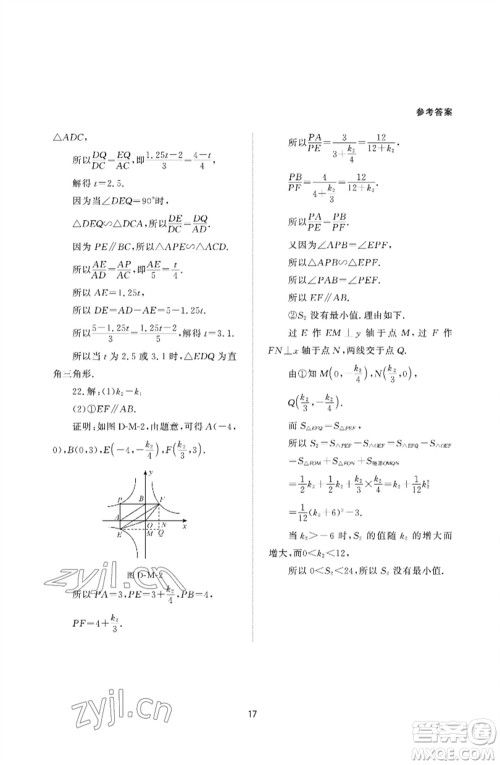 参考答案
△ADC,
所以DQ/DC=EQ/AC,即1.25t-2/5=4-t/4.
解得 t=2.5.
因为当∠DEQ=90°时,
△DEQ∽△DCA,所以DE/DC=DQ/AD.
因为 PE∥BC,所以△APE∽△ABC.
所以AE/AD=AP/AC,即AE/5=t/4.
所以 AE=1.25t.
所以 DE=AD-AE=5-1.25t.
解得 t=3.1.
所以当 t=2.5 或 t=3.1 时,△EDQ为直
角三角形.
22.解:(1)k₂-k₁
(2)①EF∥AB.
证明:如图 D-M-2,由题意,可得 A(-4,
0),B(0,3),E(-4,-k₂/4),F(k₂/3,3).
y
P B F
A O M x
E Q
图 D-M-2
所以 PA=3,PE=3+k₂/4,PB=4,
PF=4+k₂/3.
所以PA/PE=3/(3+k₂/4)=12/(12+k₂),
PB/PF=4/(4+k₂/3)=12/(12+k₂).
所以PA/PE=PB/PF.
又因为∠APB=∠EPF.
所以△APB∽△EPF.
所以∠PAB=∠PEF.
所以 EF∥AB.
②S₂ 没有最小值.理由如下.
过 E 作 EM⊥y 轴于点 M,过 F 作
FN⊥x 轴于点 N,两线交于点 Q.
由①知 M(0,-k₂/4),N(k₂/3,0),
Q(k₂/3,-k₂/4).
而 S△EFQ=S△PEF.
所以 S₂=S△PEF-S△OEF=S△EFQ-S△OEF
=S△EOM+S△FON+S矩形OMQN
=1/2k₂+1/2k₂+k₂/3·k₂/4=k₂+1/12k₂²
=1/12(k₂+6)²-3.
当 k₂>-6 时,S₂ 的值随 k₂ 的增大而
增大,而0<k₂<12,
所以 0<S₂<24,所以 S₂ 没有最小值.
17
zyjl.cn
zyjl.cn
答案圈
MXQE.COM